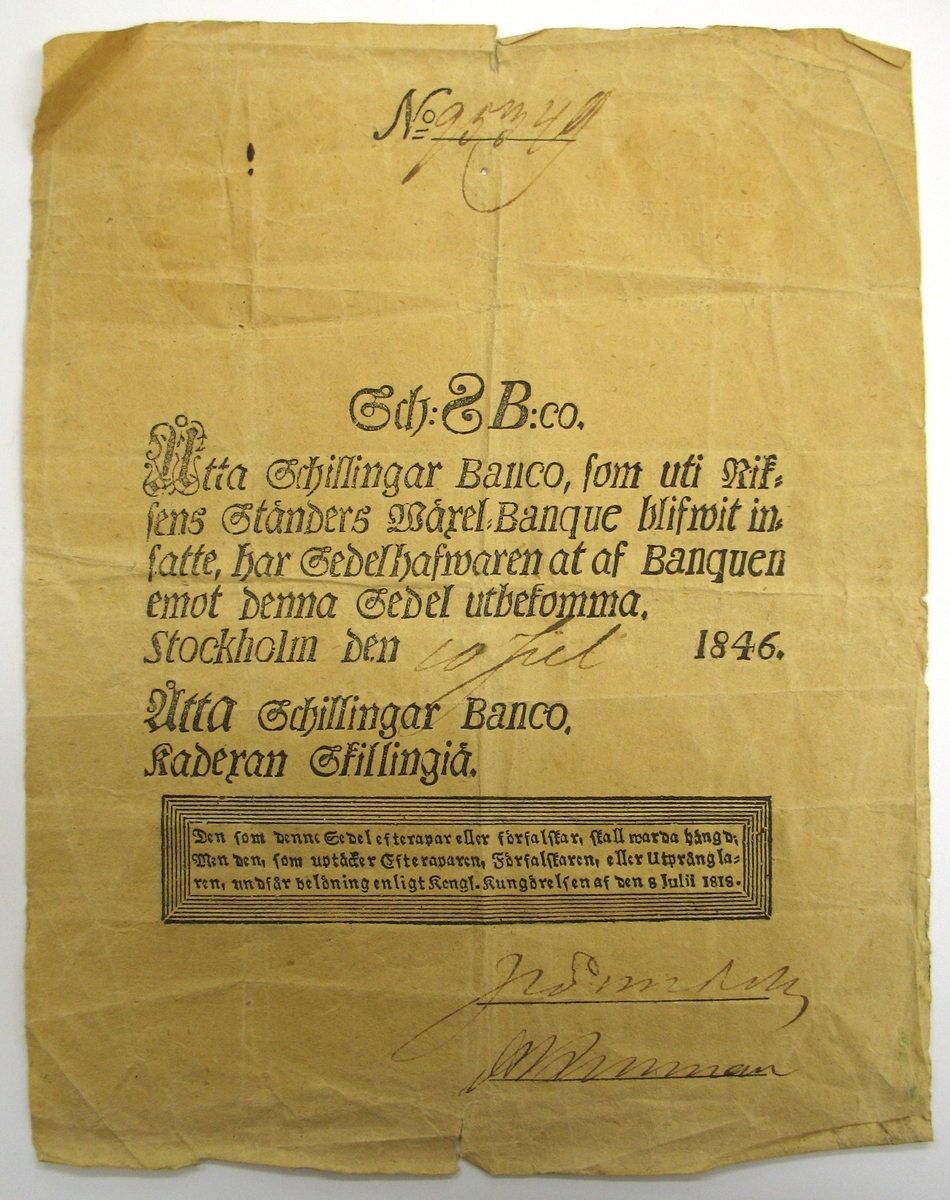 No 95349
Sch: 8 B:co.
Åtta Schillingar Banco, som uti Rik-
sens Ständers Wäxel-Banque blifwit in-
satte, har Sedelhafwaren at af Banquen
emot denna Sedel utbekomma.
Stockholm den 10 Juli 1846.
Åtta Schillingar Banco.
Kadexan Skillingiä.
Den som denne Sedel efterapar eller förfalskar, skall warda hängd;
Men den, som uptäcker Efteraparen, Förfalskaren, eller Utprångla-
ren, undfår belöning enligt Kongl. Kungörelsen af den 8 Julii 1818.